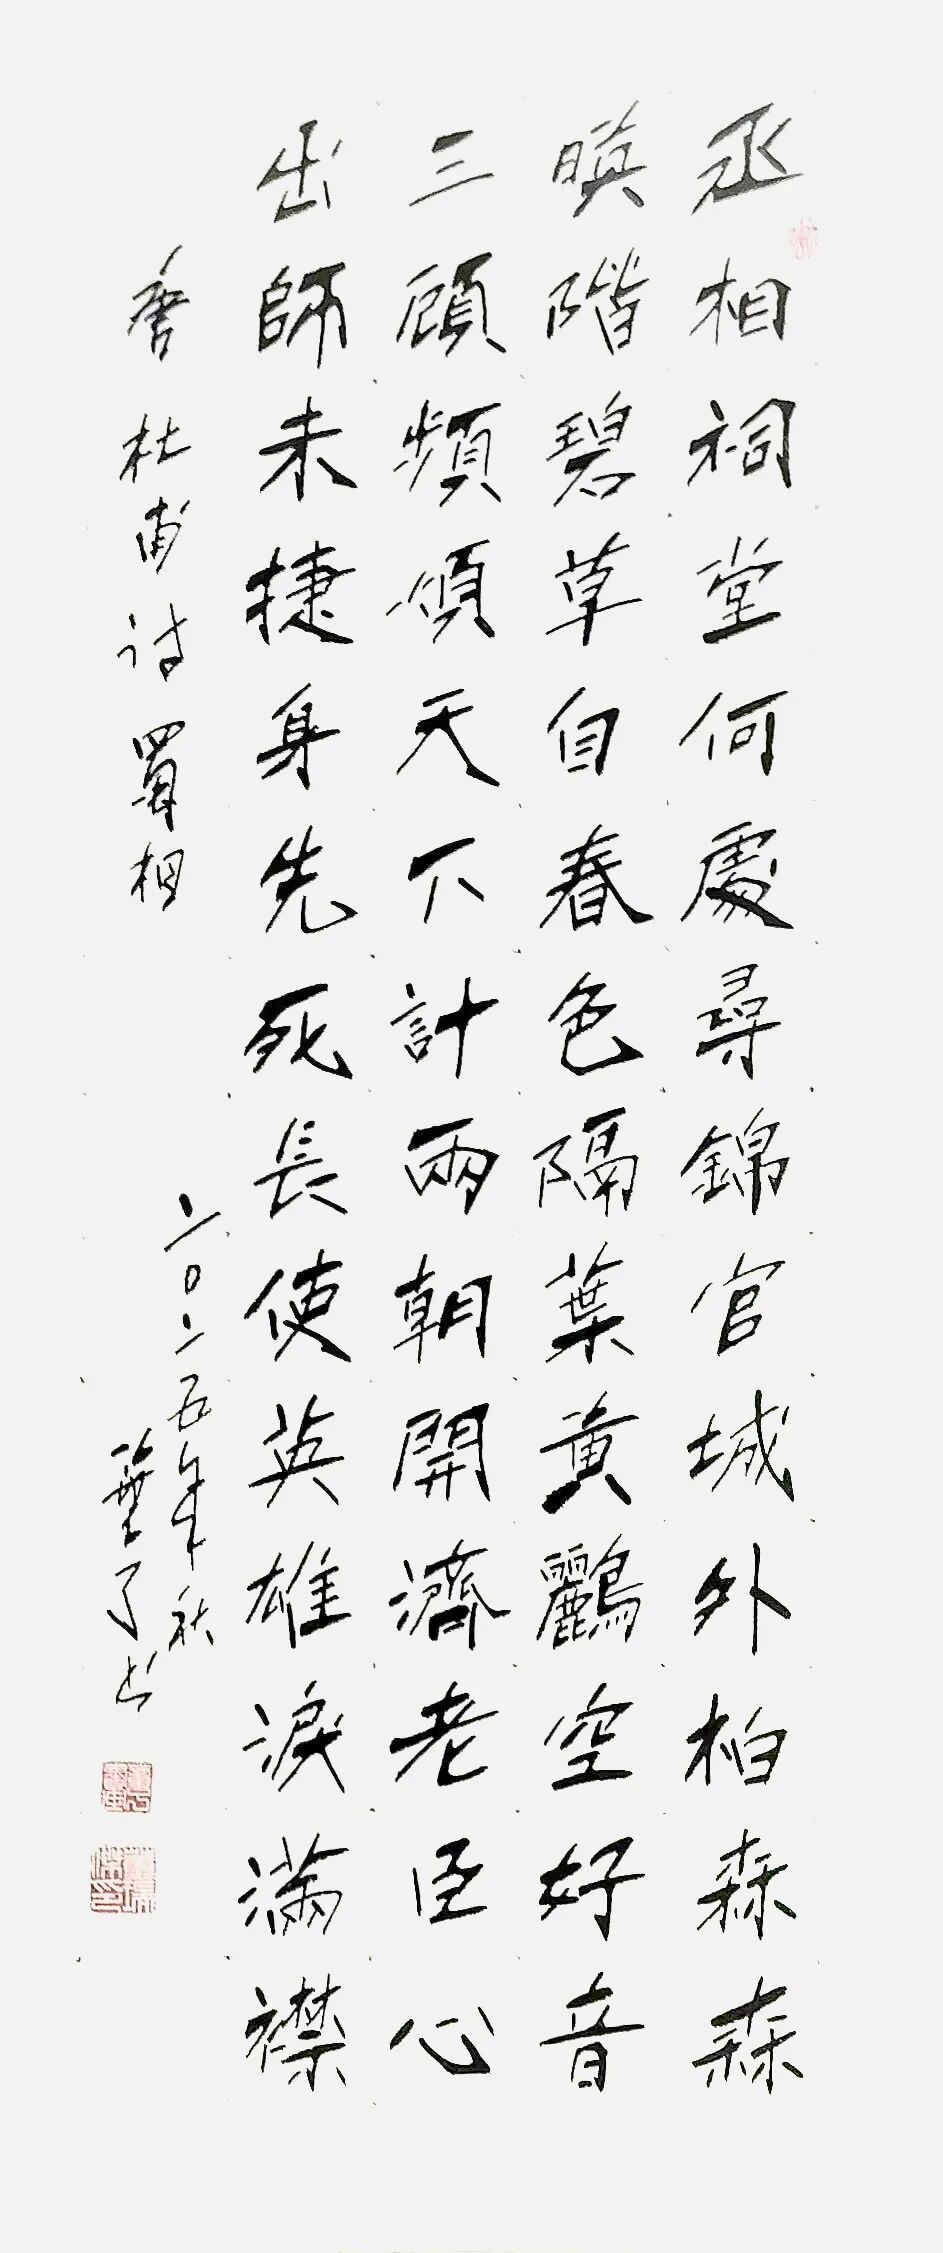 丞相祠堂何處尋錦官城外柏森森
暎階碧草自春色隔葉黄鸝空好音
三顧頻煩天下計兩朝開濟老臣心
出師未捷身先死長使英雄淚滿襟
唐杜甫诗蜀相
二〇二五年秋